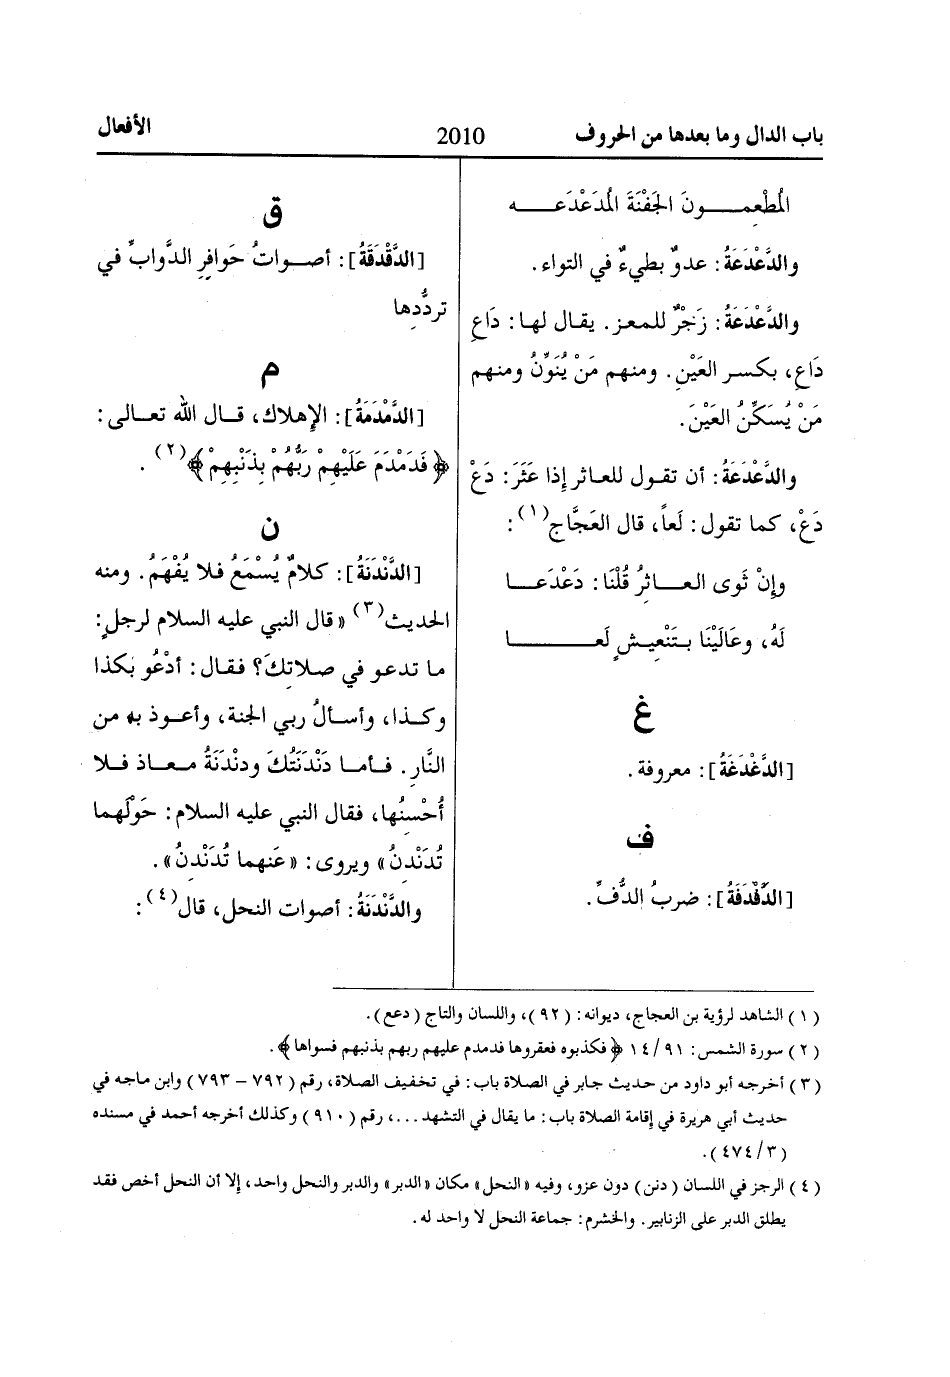 باب الدال وما بعدها من الحروف
2010
الأفعال
المُطْعِمـــونَ الجَفْنَةَ المُدَعْدَعـــه
والدَّعْدَعَةُ: عدوٌ بطيءٌ في التواء.
والدَّعْدَعَةُ: زَجْرٌ للمعز. يقال لها: دَاعِ
دَاعِ، بكسر العَيْنِ. ومنهم مَنْ يُنَوِّنُ ومنهم
مَنْ يُسَكِّنُ العَيْنَ.
والدَّعْدَعَةُ: أن تقول للعاثر إذا عَثَرَ: دَعْ
دَعْ، كما تقول: لَعاً، قال العَجَّاج(١):
وإِنْ ثَوى العـــاثرُ قُلْنَا: دَعْدَعـــا
لَهُ، وعَالَيْنَا بـتَنْعِيـشٍ لَعـــــا
غ
[الدَّغْدَغَةُ]: معروفة.
ف
[الدَّفْدَفَةُ]: ضربُ الدُّفِّ.
ق
[الدَّقْدَقَةُ]: أصـواتُ حَوافِرِ الدَّوابِّ في
تردُّدِها
م
[الدَّمْدَمَةُ]: الإهلاك، قـال الله تعـالى:
﴿فَدَمْدَمَ عَلَيْهِمْ رَبُّهُمْ بِذَنْبِهِمْ﴾(٢).
ن
[الدَّنْدَنَةُ]: كلامٌ يُسْمَعُ فـلا يُفْهَمُ. ومنه
الحديث(٣) «قال النبي عليه السلام لرجلٍ:
ما تدعو في صلاتِكَ؟ فقال: أدْعُو بكذا
وكـذا، وأسـألُ ربي الجنة، وأعـوذ به من
النَّارِ. فـأمـا دَنْدَنَتُكَ ودنْدَنَةُ مـعـاذ فـلا
أُحْسِنُها، فقال النبي عليه السلام: حَوْلَهما
تُدَنْدِنُ» ويروى: «عَنهما تُدَنْدِنُ».
والدَّنْدَنَةُ: أصوات النحل، قال(٤):
(١) الشاهد لرؤبة بن العجاج، ديوانه: (٩٢)، واللسان والتاج (دعع).
(٢) سورة الشمس: ٩١/١٤ ﴿فكذبوه فعقروها فدمدم عليهم ربهم بذنبهم فسواها﴾.
(٣) أخرجه أبو داود من حديث جابر في الصلاة باب: في تخفيف الصلاة، رقم (٧٩٢ – ٧٩٣) وابن ماجه في
حديث أبي هريرة في إقامة الصلاة باب: ما يقال في التشهد ...، رقم (٩١٠) وكذلك أخرجه أحمد في مسنده
(٣/٤٧٤).
(٤) الرجز في اللسان (دنن) دون عزو، وفيه «النحل» مكان «الدبر» والدبر والنحل واحد، إلا أن النحل أخص فقد
يطلق الدبر على الزنابير. والخشرم: جماعة النحل لا واحد له.